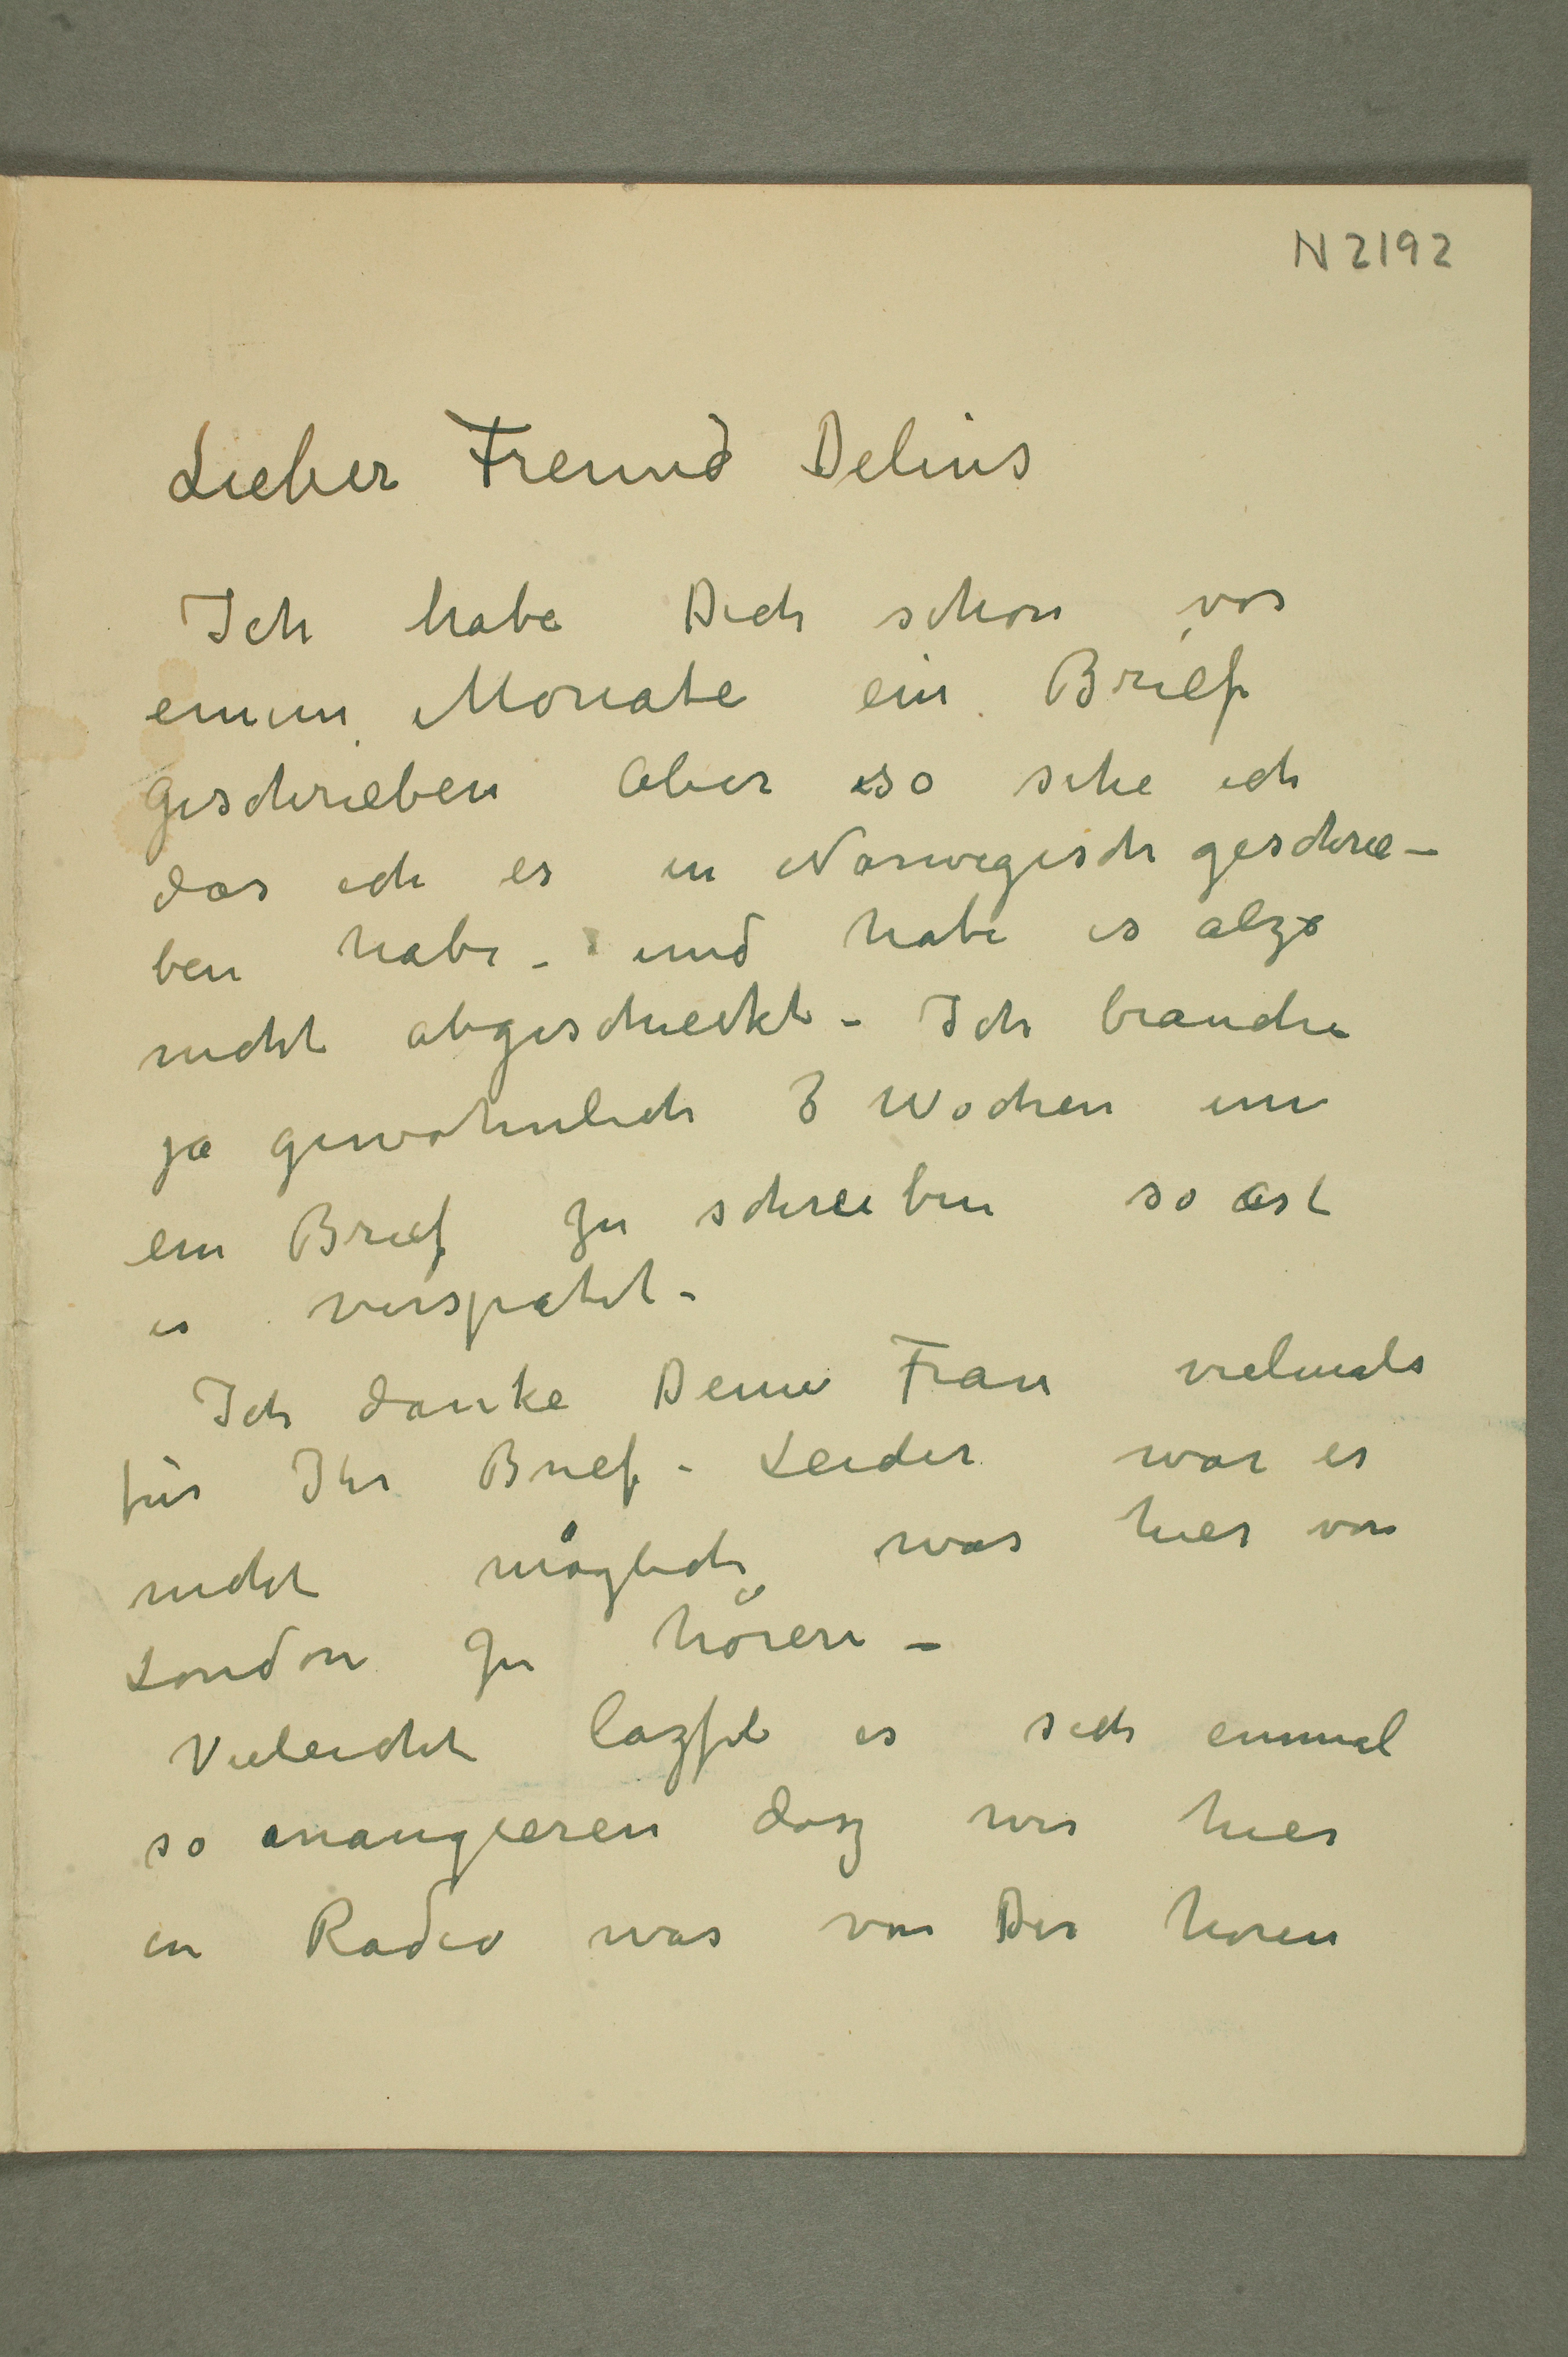 N 2192
Lieber Freund Delius
Ich habe Dich schon vor
einem Monate ein Brief
geschrieben Aber so sehe ich
das ich es in Norwegisch geschrie–
ben habe – und habe es alzo
nicht abgeschieckt – Ich brauche
ja gewohnlich 3 Wochen um
ein Brief zu schreiben so ist
es verspatet –
Ich danke Deine Frau vielmals
für Ihr Brief – Leider war es
nicht möglich was hier von
London zu hören –
Vieleicht lazst es sich einmal
so arrangieren dasz wir hier
in Radio was von Dir horen